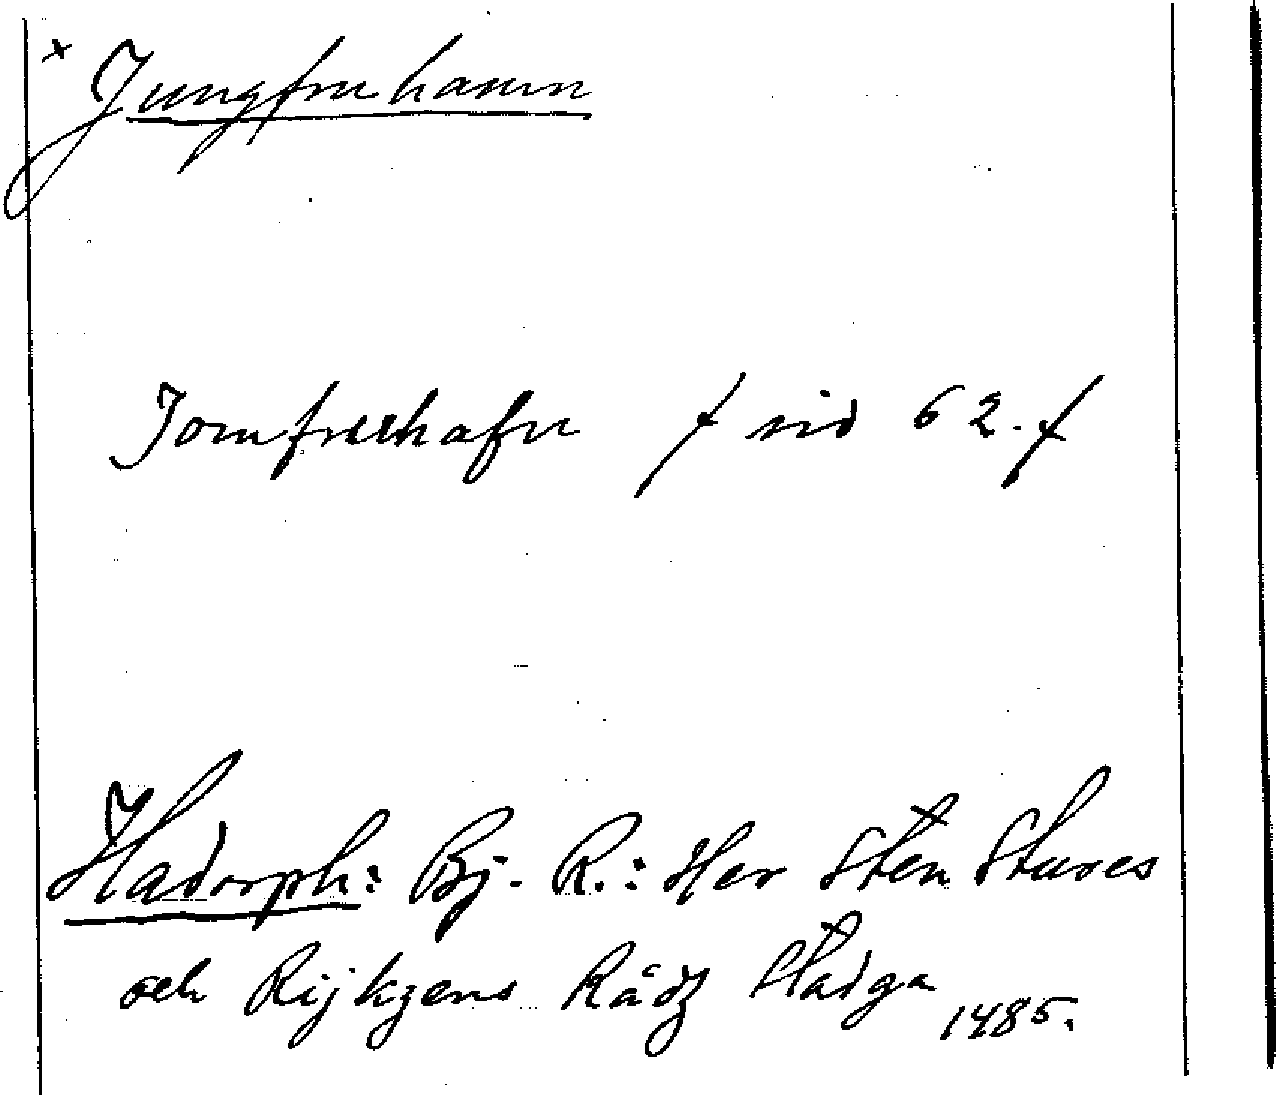 x Jungfruhamn
Jomfruhafn f sid 62. f
Hadorph: Bj. R.: Her Sten Stures
och Rijkzens Rådz Stadga 1485.